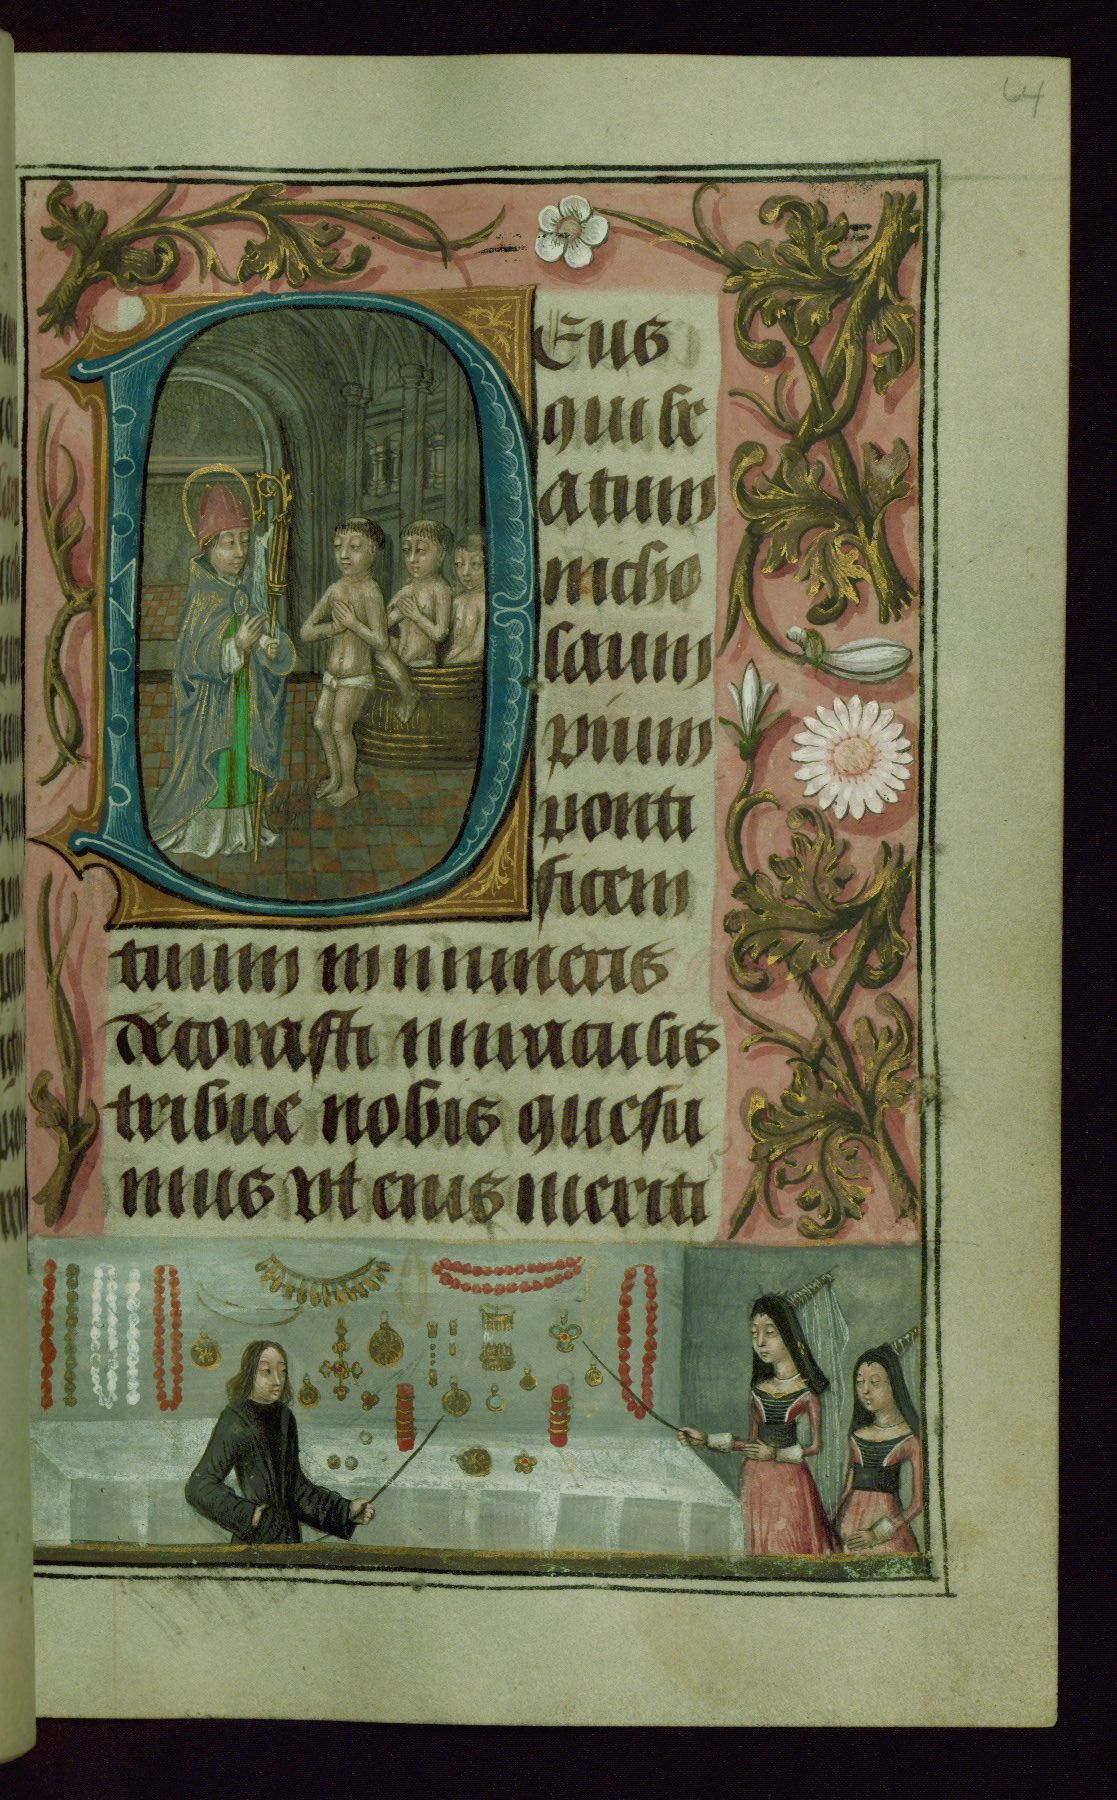 64
DEus
qui be
atum
nicho
laum
pium
ponti
ficem
tuum innumeris
decorasti miraculis
tribue nobis quesu
mus vt eius meriti